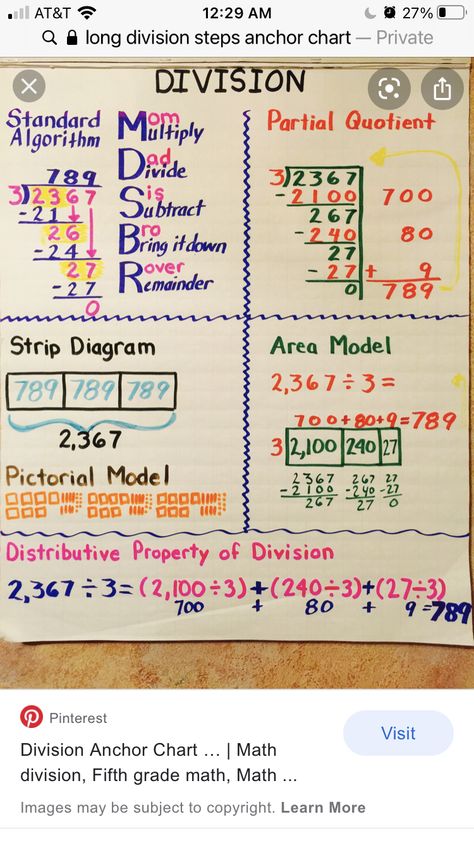 AT&T 12:29 AM 27%
long division steps anchor chart — Private
DIVISION
Standard
Algorithm
789
3)2367
-21
26
-24
27
-27
0
Mom
Multiply
Dad
Divide
is
Subtract
Bro
Bring it down
Rover
Remainder
Partial Quotient
3)2367
-2100 700
267
-240 80
27
-27 + 9
0 789
Strip Diagram
789 789 789
2,367
Pictorial Model
Area Model
2,367÷3=
700+80+9=789
3 2,100 240 27
2367 267 27
-2100 -240 -27
267 27 0
Distributive Property of Division
2,367÷3=(2,100÷3)+(240÷3)+(27÷3)
700 + 80 + 9=789
Pinterest
Visit
Division Anchor Chart … | Math
division, Fifth grade math, Math ...
Images may be subject to copyright. Learn More